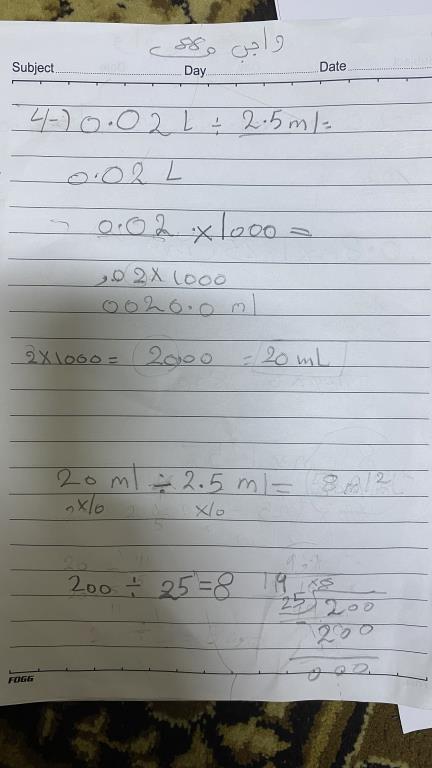 واجب
Subject Day Date
4-) 0.02 L ÷ 2.5 ml=
0.02 L
0.02 × 1000 =
,02 × 1000
0020.0 ml
2×1000 = 20,00 = 20 mL
20 ml ÷ 2.5 ml = 8 ml
×10 ×10
200 ÷ 25 = 8
25 200
200
000
FOGG